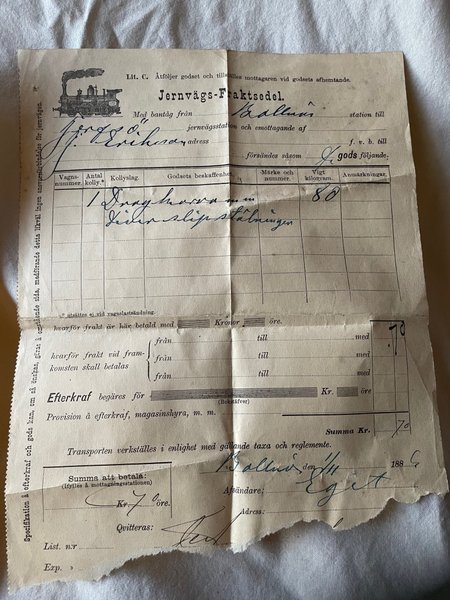 Lit. C. Åtföljer godset och tillställes mottagaren vid godsets afhemtande.
Jernvägs-Fraktsedel.
Med bantåg från Bollnäs station till
jernvägsstation och emottagande af
Erikson adress f. v. b. till
försändes såsom gods följande.
Vagns-nummer. Antal kolly.* Kollyslag. Godsets beskaffenhet. Märke och nummer. Vigt kilogram. Anmärkningar.
1 80
*) utsättes ej vid vagnslastsändning.
hvarför frakt är här betald med Kronor öre. 70
hvarför frakt vid framkomsten skall betalas
från till med
från till med
från till med
Efterkraf begäres för Kr. öre
(Bokstäfver)
Provision å efterkraf, magasinshyra, m. m.
Summa Kr. 70
Transporten verkställes i enlighet med gällande taxa och reglemente.
Bollnäs den 1/11 188
Summa att betala:
(ifylles å mottagningsstationen)
Kr. öre.
Afsändare:
Adress:
Qvitteras:
List. n:r
Exp. »
Specifikation å efterkraf och gods kan, om så önskas, göras å omstående sida, medförande detta likväl ingen ansvarsskyldighet för jernvägen.